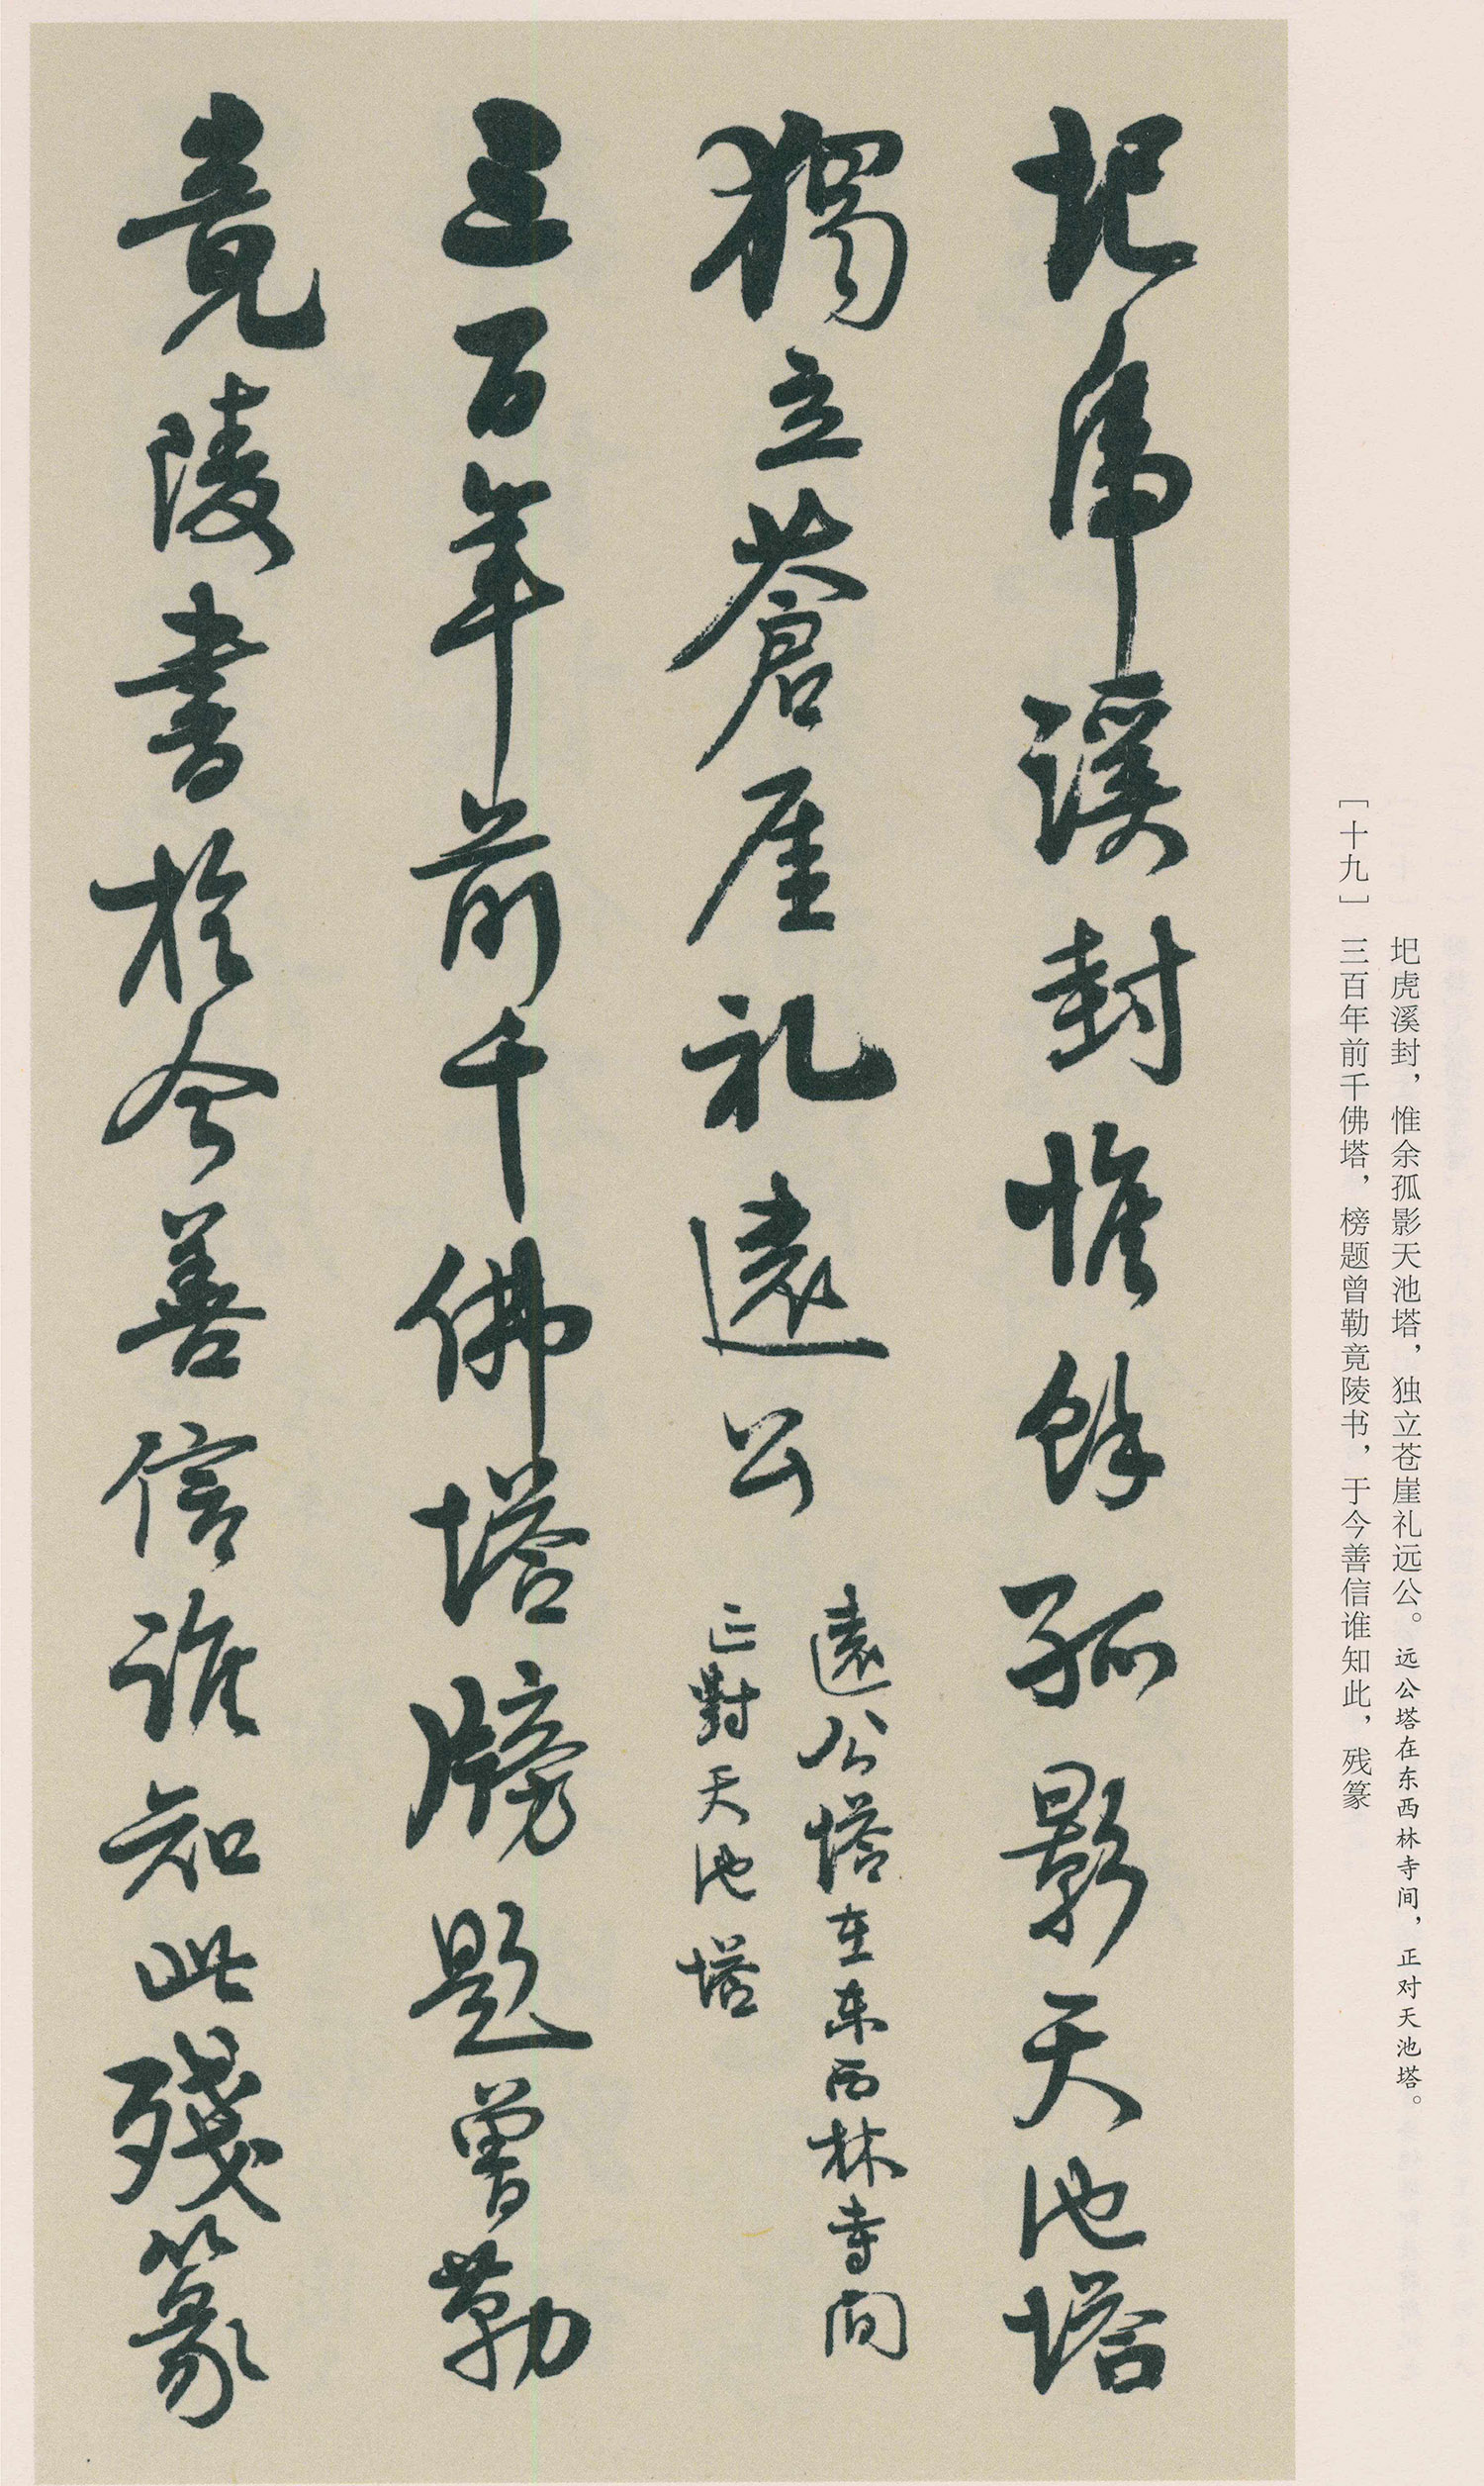 圯虎溪封，惟余孤影天池塔，独立苍崖礼远公。远公塔在东西林寺间，正对天池塔。
［十九］ 三百年前千佛塔，榜题曾勒竟陵书，于今善信谁知此，残篆
圯虎溪封惟餘孤影天池塔
獨立蒼厓礼遠公
遠公塔在東西林寺間
正對天池塔
三百年前千佛塔牓題曾勒
竟陵書於今善信誰知此殘篆